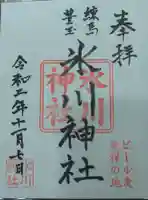 奉拝
練馬
豊玉
氷川神社
氷川
神社
令和二年十一月七日
ビール麦
発祥の地